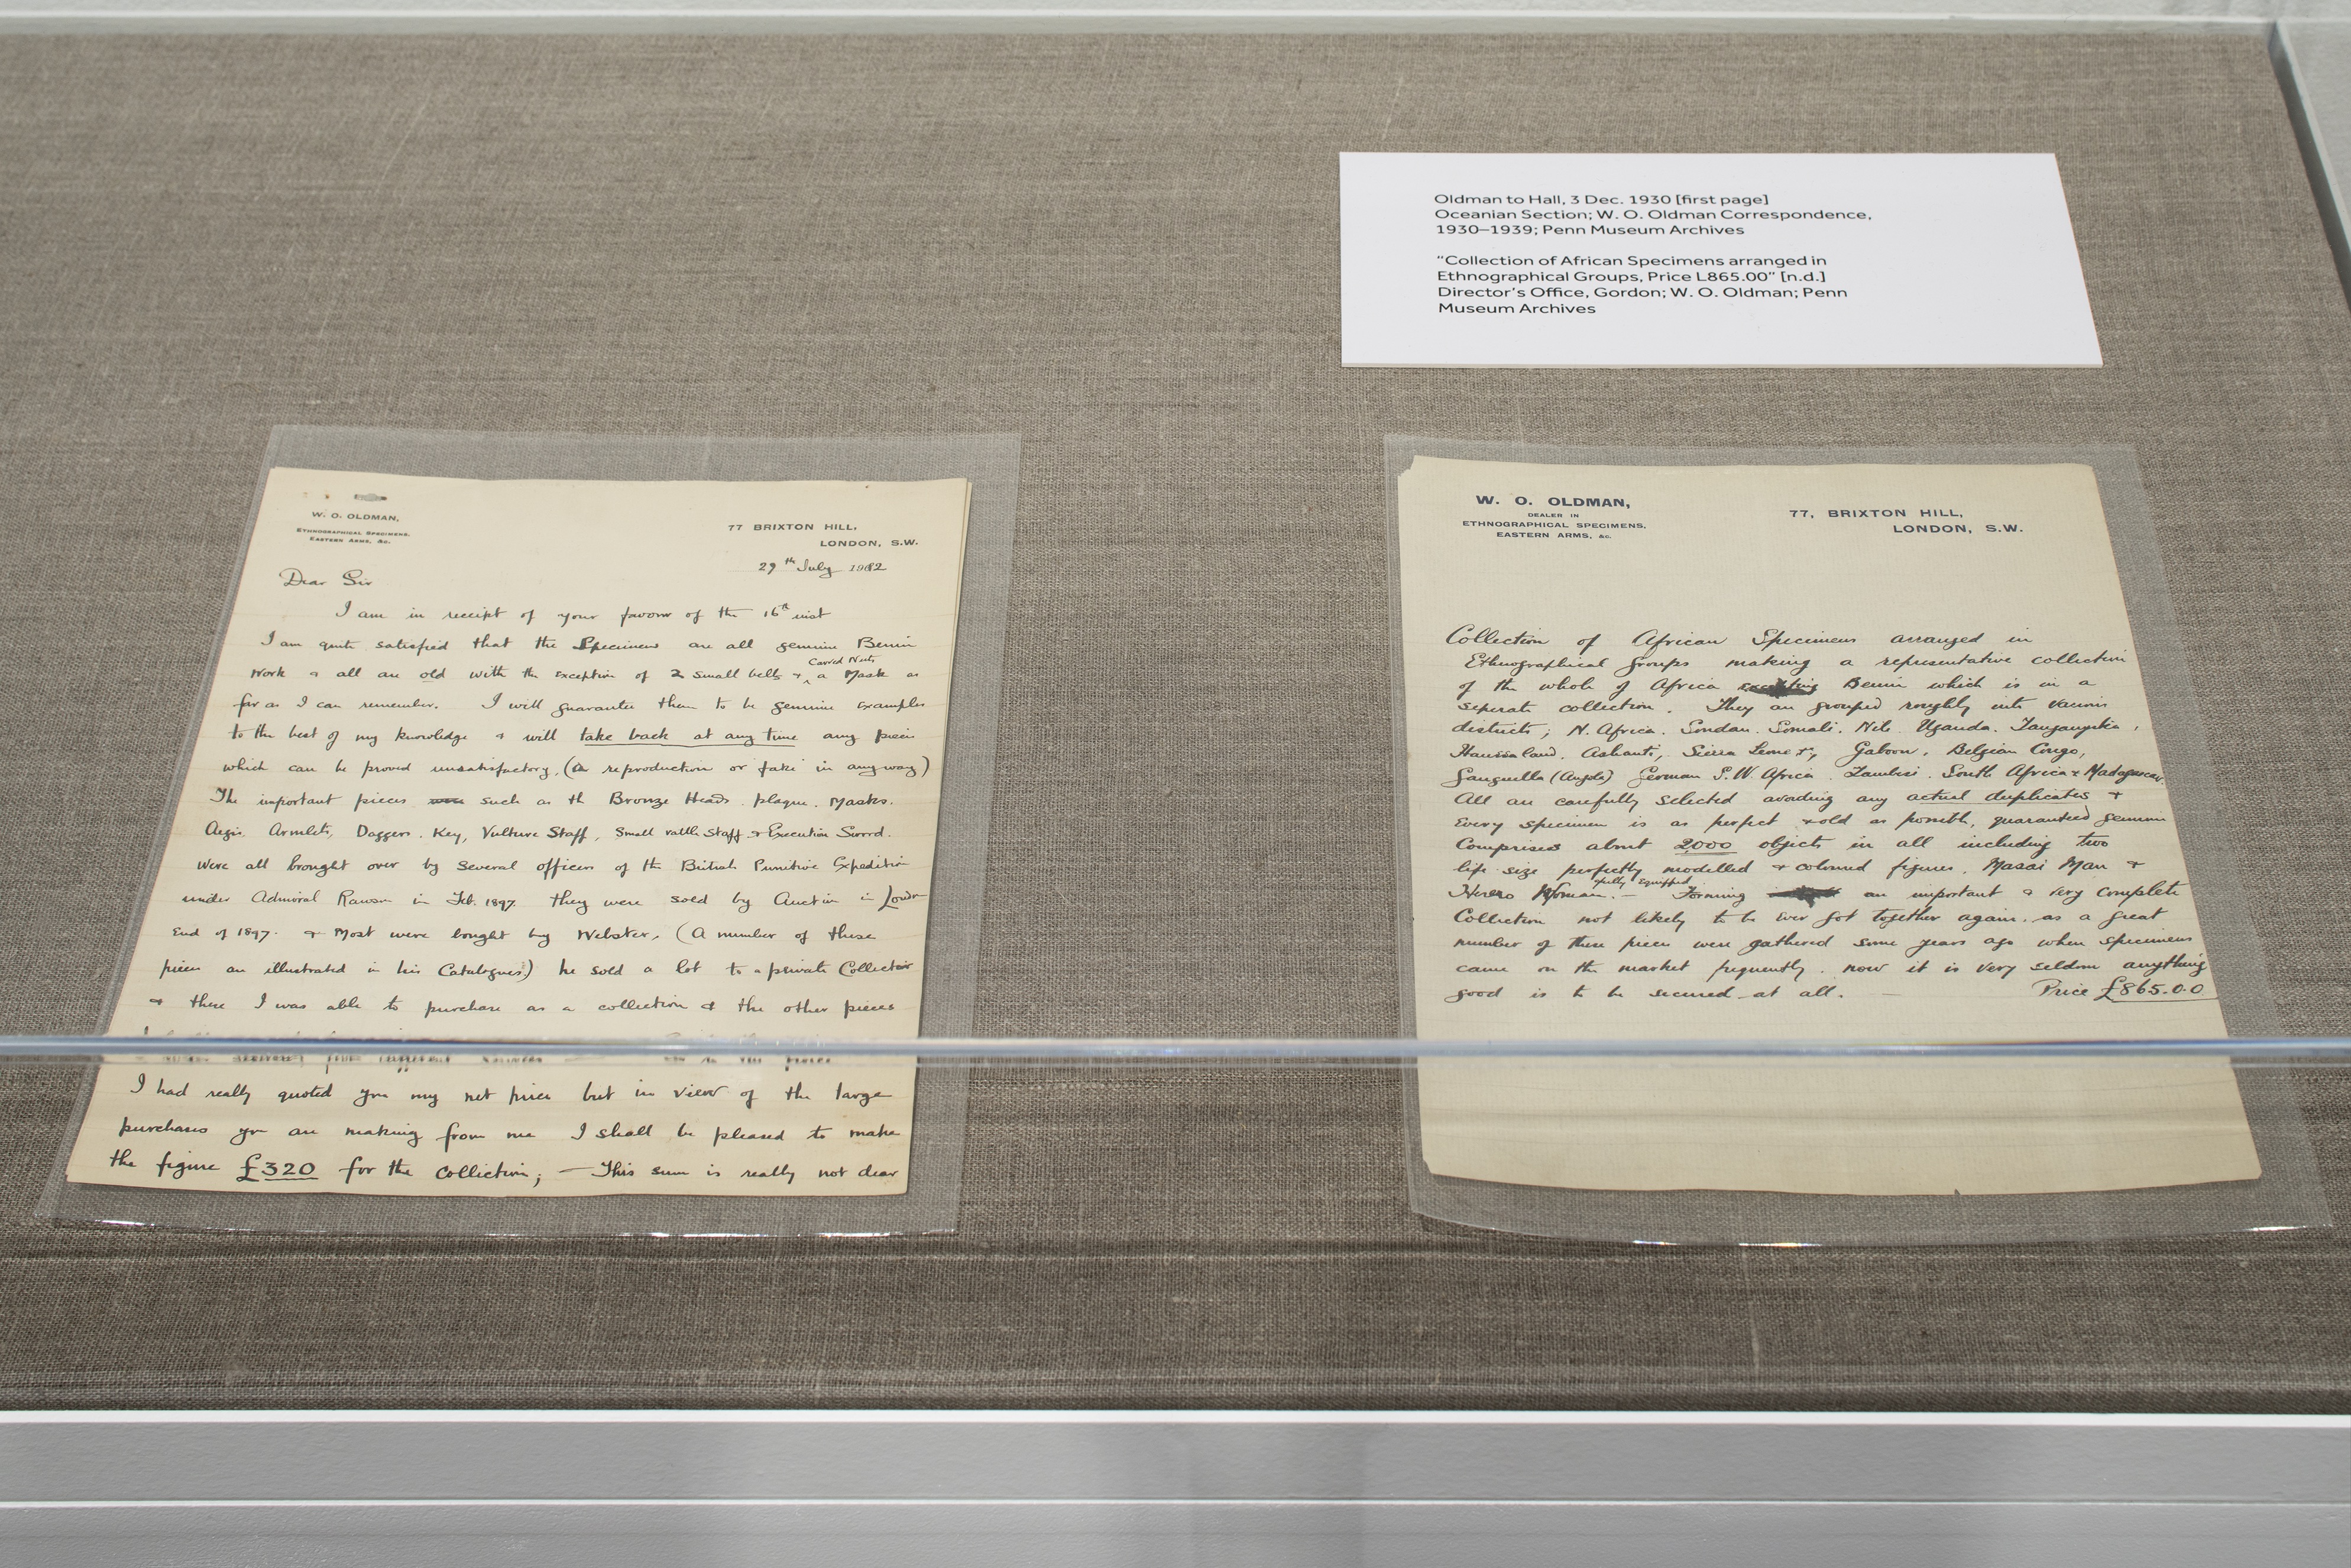 Oldman to Hall, 3 Dec. 1930 [first page]
Oceanian Section; W. O. Oldman Correspondence,
1930–1939; Penn Museum Archives
“Collection of African Specimens arranged in
Ethnographical Groups, Price L865.00” [n.d.]
Director’s Office, Gordon; W. O. Oldman; Penn
Museum Archives
W. O. OLDMAN,
ETHNOGRAPHICAL SPECIMENS,
EASTERN ARMS, &c.
77 BRIXTON HILL,
LONDON, S.W.
29th July 1912
Dear Sir
I am in receipt of your favour of the 16th inst
I am quite satisfied that the Specimens are all genuine Benin
Carved Nuts
work & all are old with the exception of 2 small bells & a Mask as
far as I can remember. I will guarantee them to be genuine examples
to the best of my knowledge & will take back at any time any piece
which can be proved unsatisfactory, (a reproduction or fake in any way)
The important pieces such as th Bronze Heads. plaque. Masks.
Aegis. Armlets, Daggers. Key, Vulture Staff, Small rattle staff & Execution Sword.
were all brought over by several officers of the British Punitive Expedition
under Admiral Rawson in Feb. 1897. they were sold by Auction in London
End of 1897. & Most were bought by Webster, (A number of these
pieces are illustrated in his Catalogues) he sold a lot to a private Collector
& these I was able to purchase as a collection & the other pieces
from different sources
I had really quoted you my net price but in view of the large
purchases you are making from me I shall be pleased to make
the figure £320 for the collection; — This sum is really not dear
W. O. OLDMAN,
DEALER IN
ETHNOGRAPHICAL SPECIMENS,
EASTERN ARMS, &c.
77, BRIXTON HILL,
LONDON, S.W.
Collection of African Specimens arranged in
Ethnographical groups making a representative collection
of the whole of Africa excepting Benin which is in a
seperate collection. They are grouped roughly into various
districts; N. Africa. Soudan. Somali. Nile. Uganda. Tanganyika,
Haussaland. Ashanti, Sierra Leone &, Gaboon, Belgian Congo,
(Angola) German S.W. Africa. Zambesi. South Africa & Madagascar
All are carefully selected avoiding any actual duplicates &
Every specimen is as perfect & old as possible, guaranteed genuine
Comprises about 2,000 objects in all including two
life size perfectly modelled & coloured figures, Masai Man &
fully Equipped
Herero Woman. — Forming an important & very complete
Collection not likely to be ever got together again, as a great
number of these pieces were gathered some years ago when specimens
came on the market frequently. now it is very seldom anything
good is to be secured at all. — Price £865.0.0